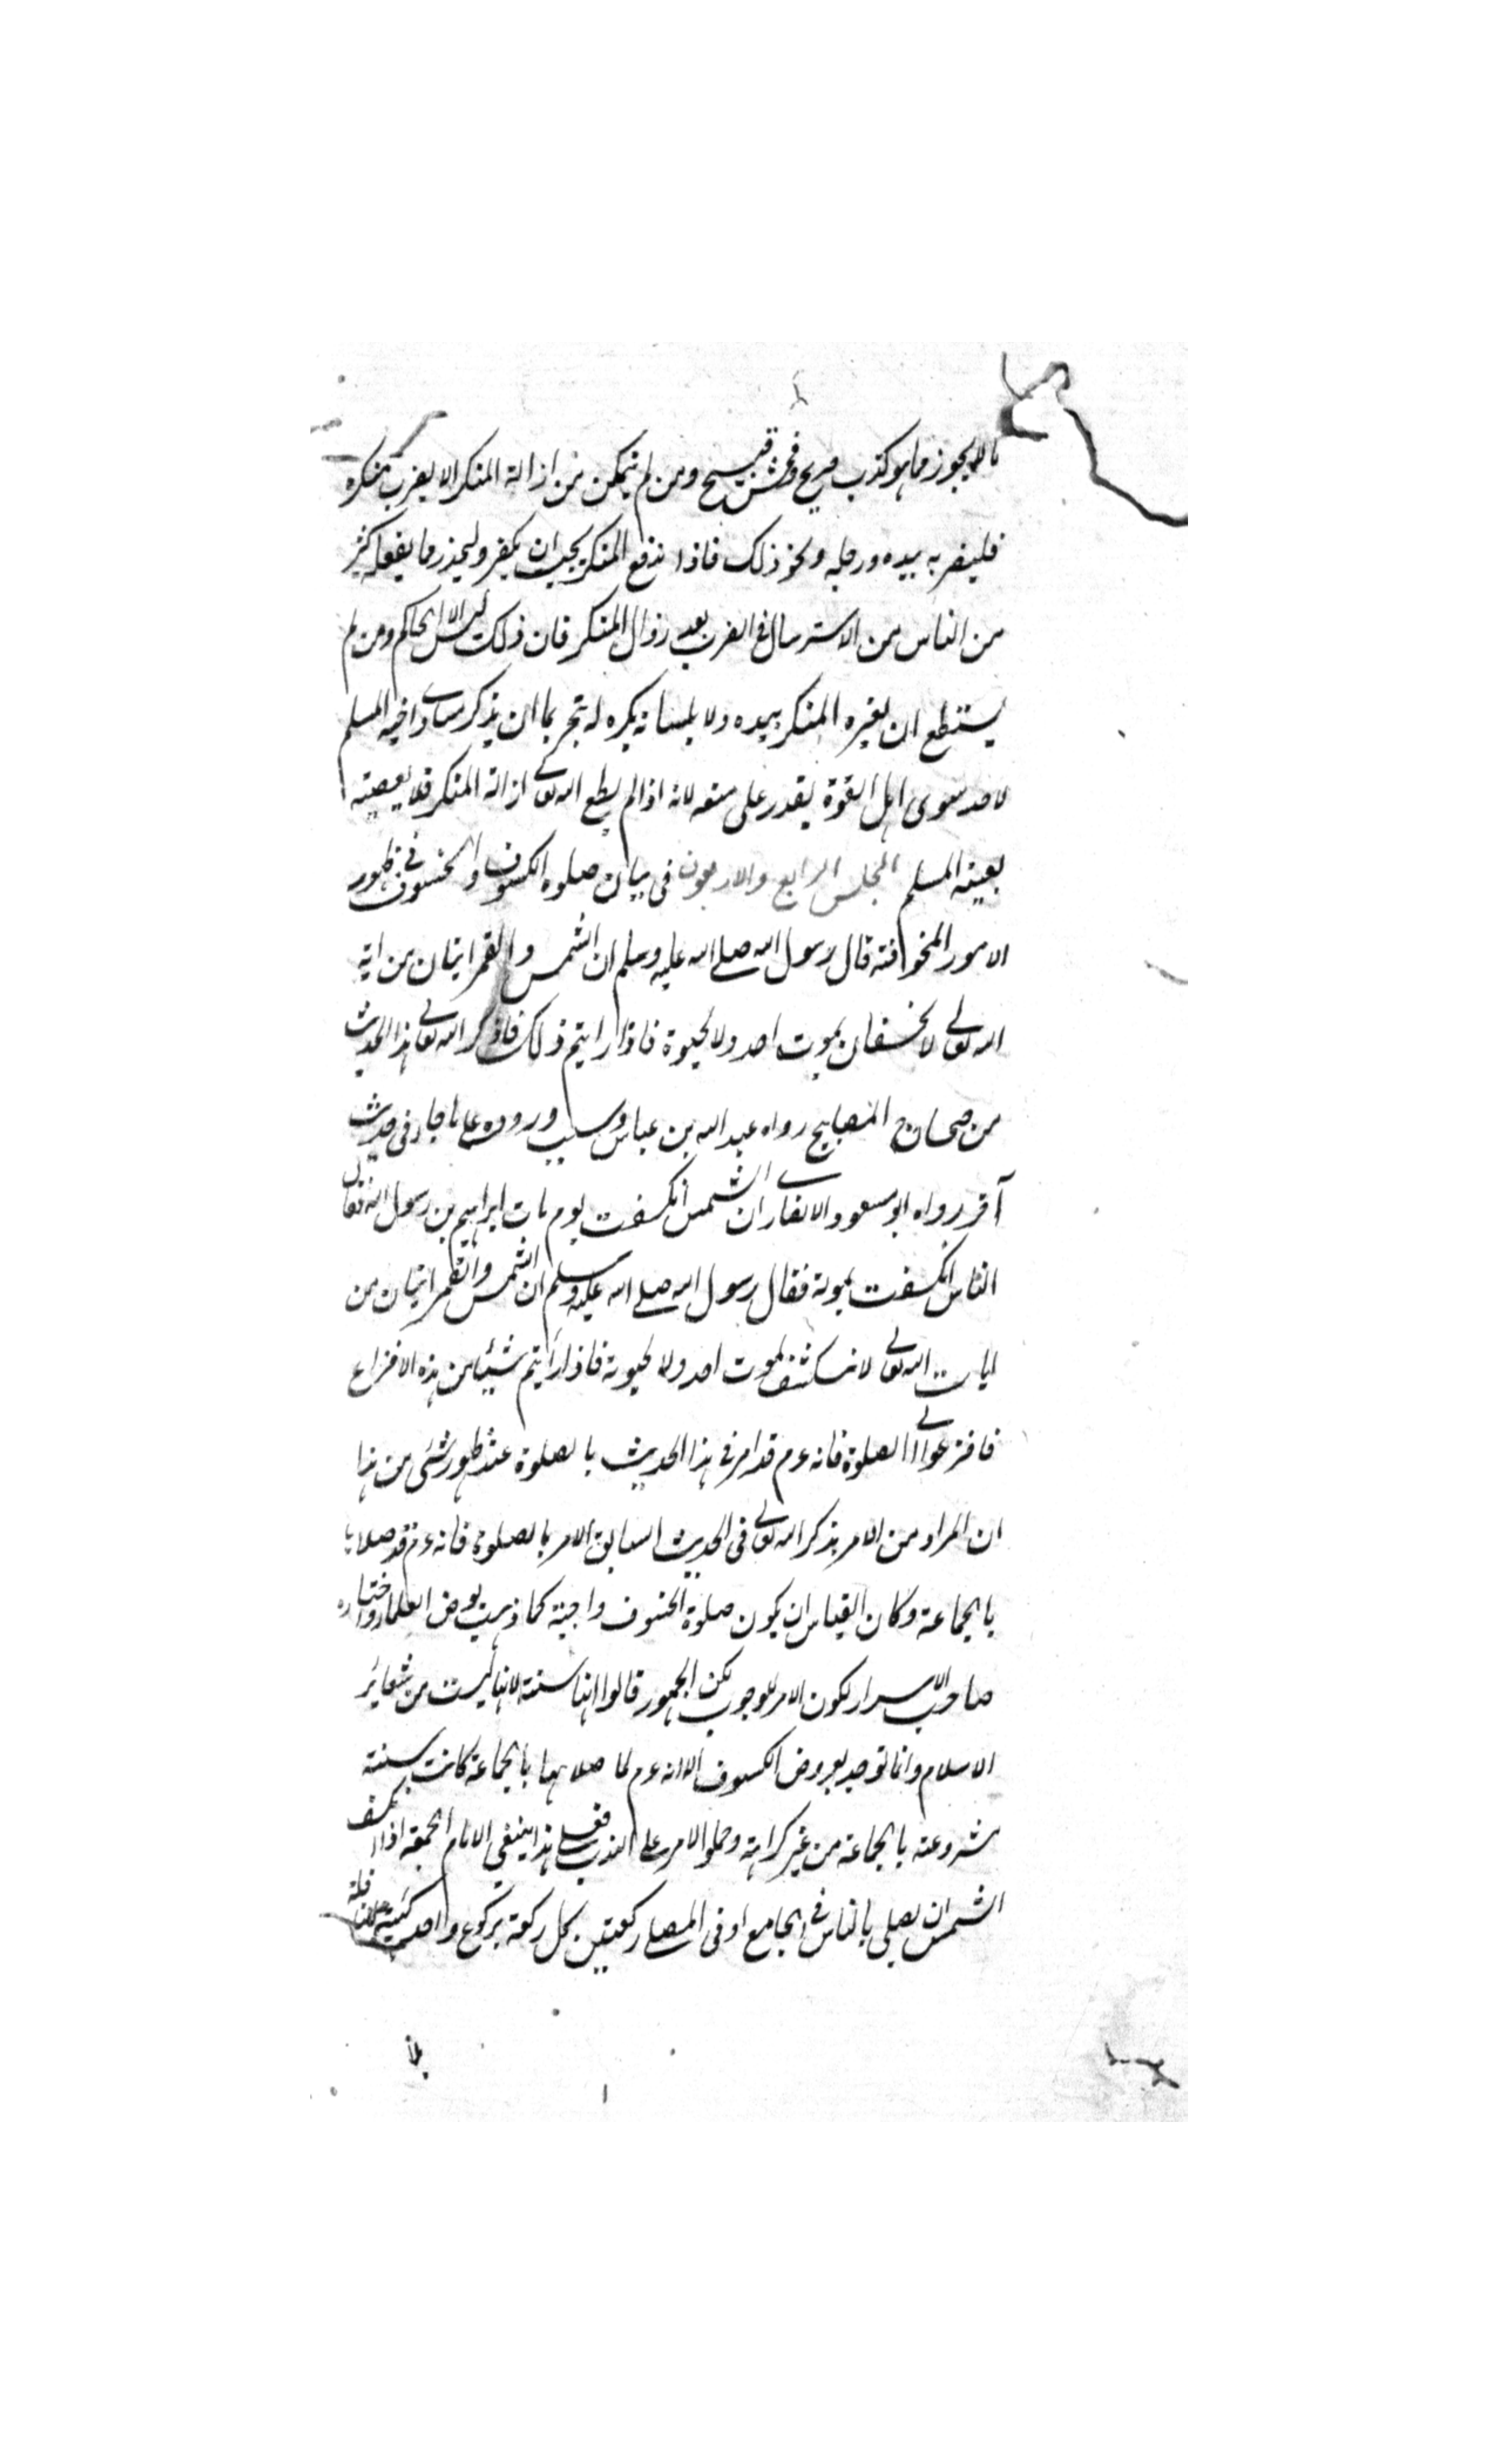 مالا يجوز مما هو كذب صريح وفحش قبيح ومن لم يتمكن من ازالة المنكر الا بضرب منكره
فليضربه بيده ورجله ونحو ذلك فاذا اندفع المنكر يجب ان يكف وليحذر ما يفعله كثير
من الناس من الاسترسال فى الضرب بعد زوال المنكر فان ذلك ليس الا للحاكم ومن لم
يستطع ان يغيره المنكر بيده ولا بلسانه يكره له ان يذكر مساوى اخيه المسلم
لاحد سوى اهل القوة يقدر على منعه لانه اذا لم يطع الله تعالى ازالة المنكر فلا يعصيه
بغيبة المسلم المجلس الرابع والاربعون فى بيان صلوة الكسوف والخسوف فى ظهور
الامور المخوافته قال رسول الله صلى الله عليه وسلم ان الشمس والقمر ايتان من اية
الله تعالى لا يخسفان بموت احد ولا لحيوة فاذا رايتم ذلك فاذكر الله تعالى هذا الحديث
من صحاح المصابيح رواه عبد الله بن عباس وسبب وروده على ما جاء فى حديث
آخر رواه ابو مسعود الانصارى ان الشمس انكسفت يوم مات ابراهيم بن رسول الله فقال
الناس انكسفت بموته فقال رسول الله صلى الله عليه وسلم ان الشمس والقمر ايتان من
ايات الله تعالى لا تنكشف لموت احد ولا لحيوته فاذا رأيتم شيئا من هذه الافزاع
فافزعوا الى الصلوة فانه عم قد امر فى هذا الحديث بالصلوة عند ظهور شئ من هذا
ان المراد من الامر بذكر الله تعالى فى الحديث السابق الامر بالصلوة فانه عم قد صلاها
بالجماعة وكان القياس ان يكون صلوة الخسوف واجبة كما ذهب بعض العلماء واختاره
صاحب الاسرار لكون الامر للوجوب لكن الجمهور قالوا انها سنة لانها ليست من شعاير
الاسلام وانما توجد بعروض الكسوف الا انه عم لما صلاها بالجماعة كانت سنة
مشروعته بالجماعة من غير كراهة وحملوا الامر على الندب فعلى هذا ينبغى لامام الجمعة اذا انكسف
الشمس ان يصلى بالناس فى الجامع او فى المصلى ركعتين كل ركعة بركوع واحد كهيئة النافلة
بلا